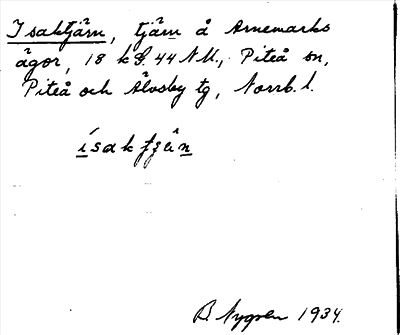 Isaktjärn, tjärn å Arnemarks
ägor, 18 k 44 NU., Piteå sn,
Piteå och Älvsby tg, Norrb. l.
ísakʃzän
B. Nygren 1934.